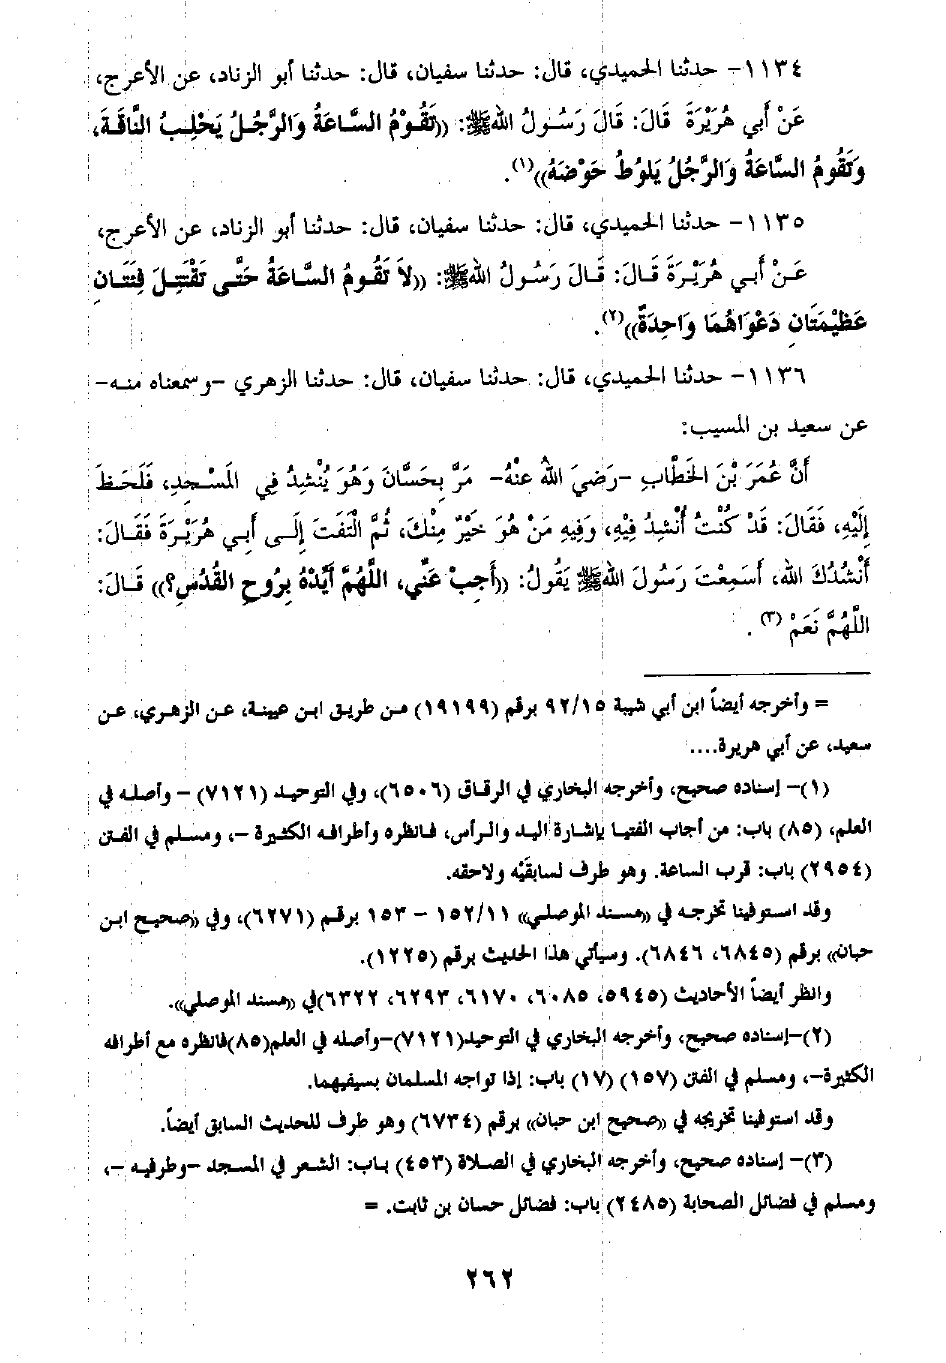 ١١٣٤- حدثنا الحميدي، قال: حدثنا سفيان، قال: حدثنا أبو الزناد، عن الأعرج،
عَنْ أَبِي هُرَيْرَةَ قَالَ: قَالَ رَسُولُ اللهﷺ: ((تَقُوْمُ السَّاعَةُ وَالرَّجُلُ يَحْلِبُ النَّاقَةَ،
وَتَقُومُ السَّاعَةُ وَالرَّجُلُ يَلُوطُ حَوْضَهُ))(١).
١١٣٥- حدثنا الحميدي، قال: حدثنا سفيان، قال: حدثنا أبو الزناد، عن الأعرج،
عَنْ أَبِي هُرَيْرَةَ قَالَ: قَالَ رَسُولُ اللهﷺ: ((لاَ تَقُومُ السَّاعَةُ حَتَّى تَقْتَتِلَ فِئَتَانِ
عَظِيْمَتَانِ دَعْوَاهُمَا وَاحِدَةٌ))(٢).
١١٣٦- حدثنا الحميدي، قال: حدثنا سفيان، قال: حدثنا الزهري -وسمعناه منه-
عن سعيد بن المسيب:
أَنَّ عُمَرَ بْنَ الخَطَّابِ -رَضِيَ اللهُ عِنْهُ- مَرَّ بِحَسَّانَ وَهُوَ يُنْشِدُ فِي المَسْجِدِ، فَلَحَظَ
إِلَيْهِ، فَقَالَ: قَدْ كُنْتُ أُنْشِدُ فِيْهِ، وَفِيهِ مَنْ هُوَ خَيْرٌ مِنْكَ، ثُمَّ الْتَفَتَ إِلَى أَبِي هُرَيْرَةَ فَقَالَ:
أَنْشُدُكَ اللهَ، أَسَمِعْتَ رَسُولَ اللهﷺ يَقُولُ: ((أَجِبْ عَنِّي، اللَّهُمَّ أَيِّدْهُ بِرُوحِ القُدُسِ؟)) قَالَ:
اللَّهُمَّ نَعَمْ (٣).
= وأخرجه أيضاً ابن أبي شيبة ٩٢/١٥ برقم (١٩١٩٩) من طريق ابن عيينة، عن الزهري، عن
سعيد، عن أبي هريرة....
(١)- إسناده صحيح، وأخرجه البخاري في الرقاق (٦٥٠٦)، وفي التوحيد (٧١٢١) - وأصله في
العلم، (٨٥) باب: من أجاب الفتيا بإشارة اليد والرأس، فانظره وأطرافه الكثيرة -، ومسلم في الفتن
(٢٩٥٤) باب: قرب الساعة. وهو طرف لسابقَيْه ولاحقه.
وقد استوفينا تخرجه في «مسند الموصلي» ١٥٢/١١ - ١٥٣ برقم (٦٢٧١)، وفي «صحيح ابن
حبان» برقم (٦٨٤٥، ٦٨٤٦). وسيأتي هذا الحديث برقم (١٢٢٥).
وانظر أيضاً الأحاديث (٥٩٤٥، ٦٠٨٥، ٦١٧٠، ٦٢٩٣، ٦٣٢٢)في «مسند الموصلي».
(٢)-إسناده صحيح، وأخرجه البخاري في التوحيد(٧١٢١)-وأصله في العلم(٨٥)فانظره مع أطرافه
الكثيرة-، ومسلم في الفتن (١٥٧) (١٧) باب: إذا تواجه المسلمان بسيفيهما.
وقد استوفينا تخريجه في «صحيح ابن حبان» برقم (٦٧٣٤) وهو طرف للحديث السابق أيضاً.
(٣)- إسناده صحيح، وأخرجه البخاري في الصلاة (٤٥٣) باب: الشعر في المسجد -وطرفيه -،
ومسلم في فضائل الصحابة (٢٤٨٥) باب: فضائل حسان بن ثابت. =
٢٦٢